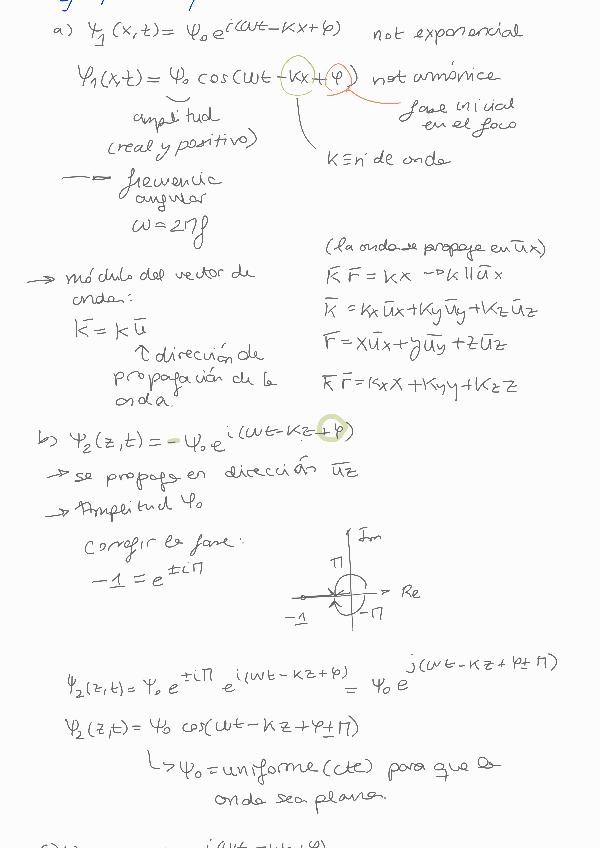 a) Ψ₁(x,t) = Ψ₀ e^i(ωt-Kx+φ) not exponencial
Ψ₁(x,t) = Ψ₀ cos(ωt-Kx+φ) not armónica
amplitud
(real y positivo)
fase inicial
en el foco
K≡nº de onda
frecuencia
angular
ω=2πf
(la onda se propaga en ūx)
→ módulo del vector de
onda:
K̄ r̄ = Kx → K || ūx
K̄ = K ū
K̄ = Kx ūx + Ky ūy + Kz ūz
↑ dirección de
propagación de la
onda.
r̄ = x ūx + y ūy + z ūz
K̄ r̄ = Kx x + Ky y + Kz z
b) Ψ₂(z,t) = - Ψ₀ e^i(ωt-Kz+φ)
→ se propaga en dirección ūz
→ Amplitud Ψ₀
Corregir la fase:
-1 = e^±iπ
Im
π
Re
-1
-π
Ψ₂(z,t) = Ψ₀ e^±iπ e^i(ωt-Kz+φ) = Ψ₀ e^j(ωt-Kz+φ±π)
Ψ₂(z,t) = Ψ₀ cos(ωt-Kz+φ±π)
↳ Ψ₀ = uniforme (cte) para que la
onda sea plana.